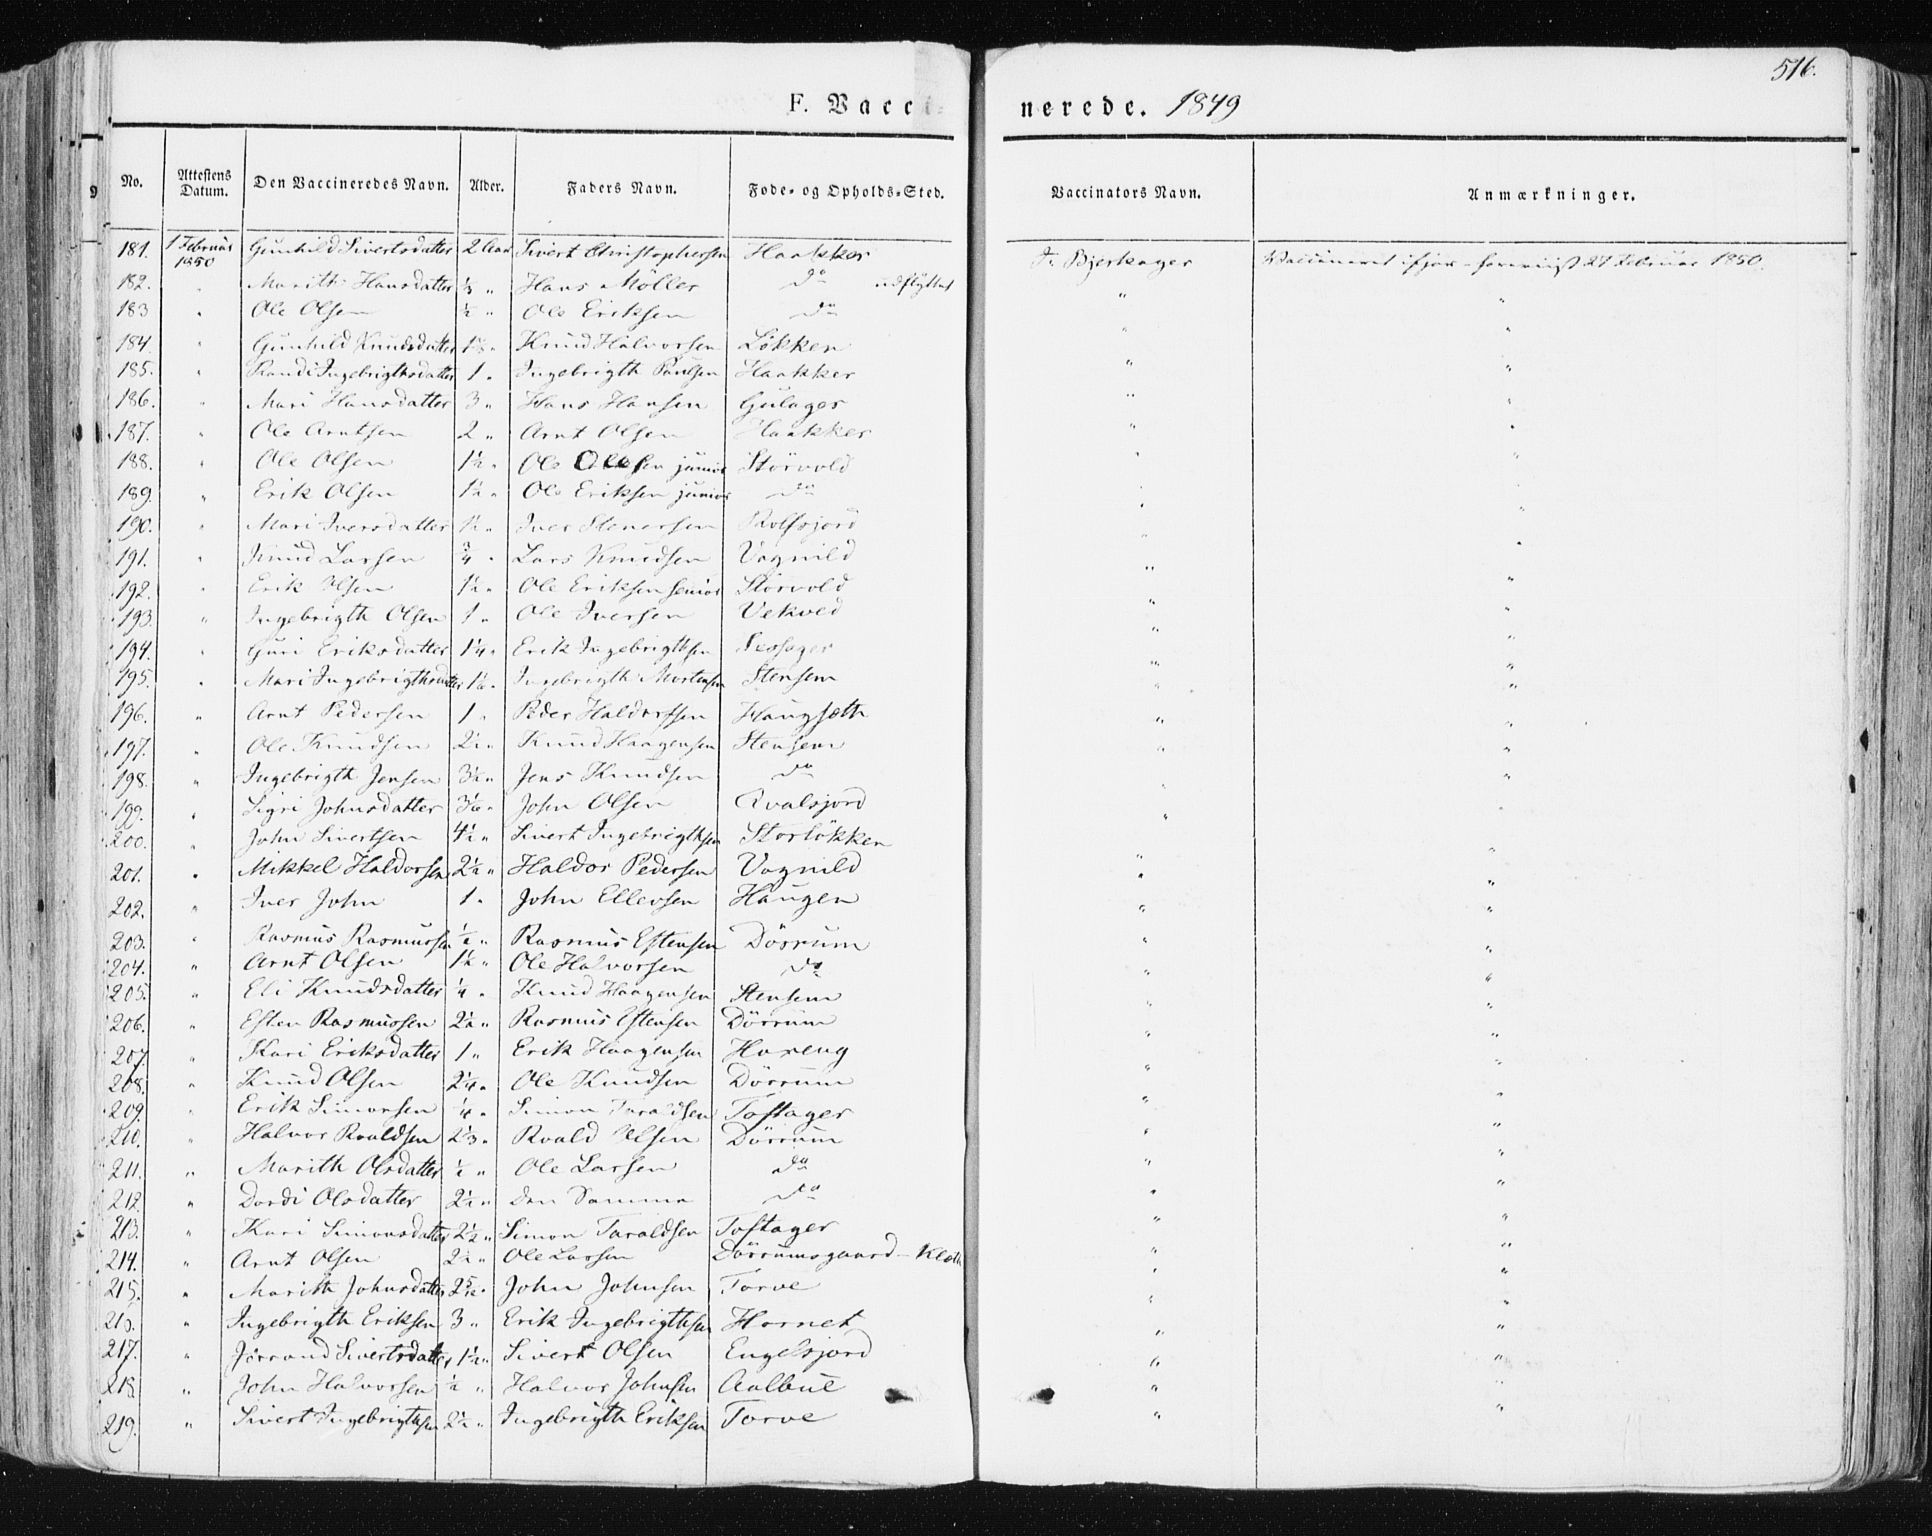 516.
F. Vacci= nerede. 1849
No. Attestens Datum. Den Vaccineredes Navn. Alder. Faders Navn. Føde- og Opholds-Sted. Vaccinators Navn. Anmærkninger.
181. 1 Februar 1850 Gunhild Sivertsdatter 2 Aar Sivert Christophersen Haakker Bjerkager Vaccineret ifjor 27 Februar 1850.
182. " Marith Hansdatter " Hans Möller do udflyttet " "
183 " Ole Olsen ½ " Ole Eriksen do " "
184. " Gunhild Knudsdatter Knud Halvorsen Løkken " "
185. " Randi Ingebrigthsdatter 1 " Ingebrigth Paulsen Haakker " "
186. " Mari Hansdatter 3 " Hans Hansen Gulager " "
187. " Ole Arntsen 2 " Arnt Olsen Haakker " "
188. " Ole Olsen 1½ " Ole Olesen junior Störvold " "
189. " Erik Olsen 1½ " Ole Eriksen junior do " "
190. " Mari Iversdatter 1½ " Iver Stenersen Rolfsjord " "
191. " Knud Larsen ¾ " Lars Knudsen Vognild " "
192. " Erik Olsen 1½ " Ole Eriksen senior Störvold " "
193. " Ingebrigth Olsen 1 " Ole Iversen Vekved " "
194. " Guri Eriksdatter 1¼ " Erik Ingebrigthsen " "
195. " Mari Ingebrigthsdatter Ingebrigth Mortensen Stensem " "
196. " Arnt Pedersen 1 " Peder Haldorsen Haugsæth " "
197. " Ole Knudsen 2½ " Knud Haagensen Stensem " "
198. " Ingebrigth Jensen 3½ " Jens Knudsen do " "
199. " Sigri Johnsdatter John Olsen Qvalsjord " "
200. " John Sivertsen 4½ " Sivert Ingebrigthsen Storløkken " "
201. " Mikkel Haldorsen 2½ " Haldor Pedersen Vognild " "
202. " Iver John 1 " John Ellevsen Haugen " "
203. " Rasmus Rasmussen ½ " Rasmus Estensen Dörrum " "
204. " Arnt Olsen 1½ " Ole Halvorsen do " "
205. " Eli Knudsdatter ¼ " Knud Haagensen Stensem " "
206. " Esten Rasmussen 2½ " Rasmus Estensen Dörrum " "
207. " Kari Eriksdatter 1 " Erik Haagensen Hoxeng " "
208. " Knud Olsen 2¼ " Ole Knudsen Dörrum " "
209. " Erik Simonsen ¼ " Simon Taraldsen Toftager " "
210. " Halvor Roaldsen 2⅓ " Roald Olsen Dörrum " "
211. " Marith Olsdatter ½ " Ole Larsen do " "
212. " Dordi Olsdatter 2½ " Den Samme do " "
213. " Kari Simonsdatter 2½ " Simon Taraldsen Toftager " "
214. " Arnt Olsen 2½ " Ole Larsen Dörrumsgaard - " "
215. " Marith Johnsdatter John Johnsen Torve " "
216. " Ingebrigth Eriksen 3 " Erik Ingebrigthsen Hornet " "
217. " Jörrand Sivertsdatter 1½ " Sivert Olsen Engelsjord " "
218 " John Halvorsen ½ " Halvor Johnsen Aalbue " "
219. " Sivert Ingebrigthsen 2½ " Ingebrigth Eriksen Torve " "